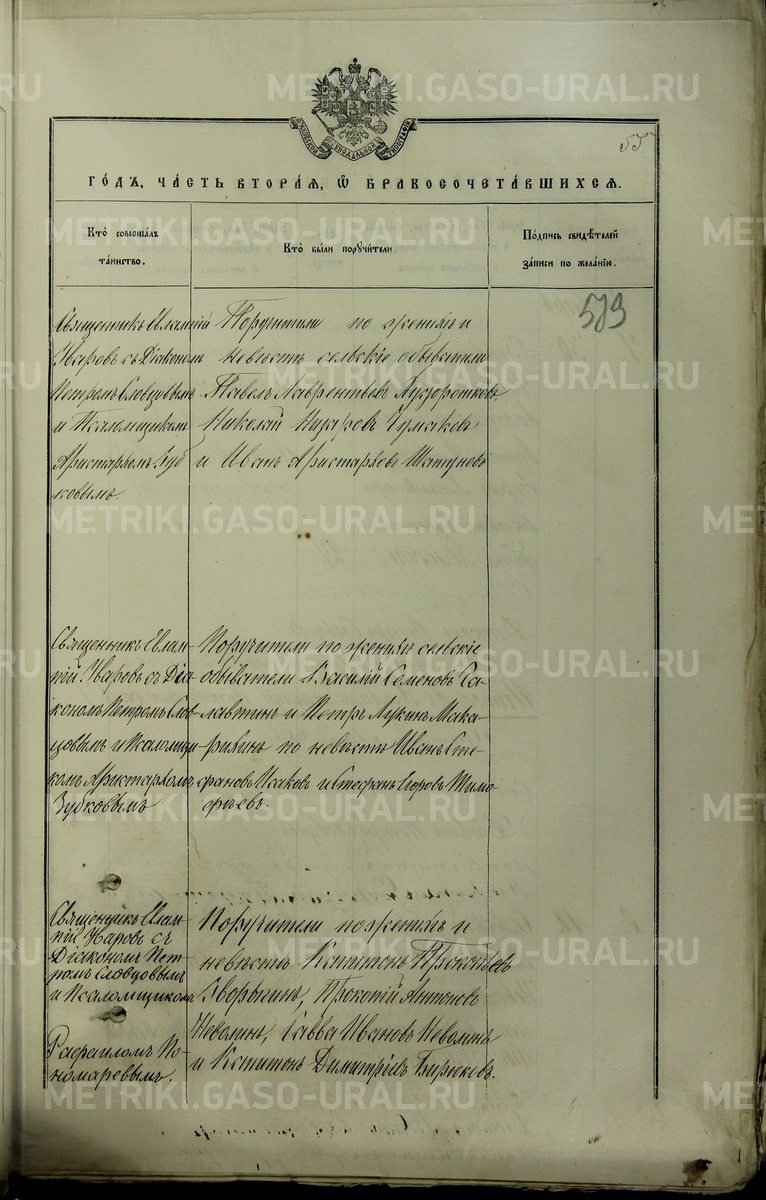 METRIKI.GASO-URAL.RU
МОСКОВСКОЙ СѴНОДАЛЬНОЙ ТИПОГРАФІИ
55
ГО́ДЪ, ЧА́СТЬ ВТОРА́Я, Ѽ БРАКОСОЧЕТА́ВШИХСЯ.
Кто̀ совершалъ
та́инство.
Кто̀ бы́ли порꙋчи́тели.
По́дпись свидѣ́телей
за́писи по жела́нїю.
579
Священникъ Евлампій
Уваровъ съ Діакономъ
Петромъ Словцовымъ
и Псаломщикомъ
Аристархомъ Зуб
ковымъ.
Поручители по женихѣ и
невѣстѣ сельскіе обыватели
Павелъ Лаврентьевъ
Николай Чумаковъ
и Иванъ Аристарховъ Шатуновъ
Священникъ Евлам-
пій Уваровъ съ Діа
кономъ Петромъ Слов
цовымъ и Псаломщи
комъ Аристархомъ
Зубковымъ
Поручители по женихѣ сельскіе
обыватели Василій Семеновъ Са-
лавтинъ и Петръ Лукинъ Мака-
рихинъ по невѣстѣ Иванъ Сте-
фановъ Исаковъ и Стефанъ Егоровъ Тимо
фѣевъ.
Священникъ Евлам-
пій Уваровъ съ
Діакономъ Пет-
ромъ Словцовымъ
и Псаломщикомъ
Рафаиломъ По-
номаревымъ.
Поручители по женихѣ и
невѣстѣ Капитонъ Прокопьевъ
Прокопій Антоновъ
Неволинъ, Савва Ивановъ Неволинъ
и Капитонъ Димитріевъ Бирюковъ.